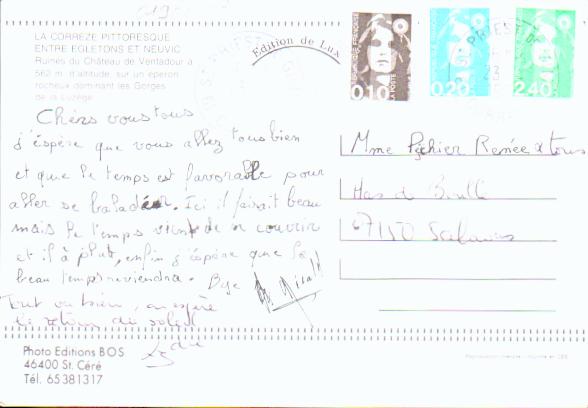 LA CORREZE PITTORESQUE
ENTRE EGLETONS ET NEUVIC
Ruines du Château de Ventadour à
562 m. d'altitude, sur un éperon
rocheux dominant les Gorges
de la Luzège
Edition de Luxe
REPUBLIQUE FRANÇAISE
LA POSTE
0,10
0,20
2,40
ST PRIEST
23
Chers vous tous
J'espère que vous allez tous bien
et que le temps est favorable pour
aller se balader. Ici il faisait beau
mais le temps vient de se couvrir
et il a plut, enfin j'espère que le
beau temps reviendra. Bye
Tout va bien, on espère
le retour du soleil
Mme Renée & tous
Mas de
Photo Editions BOS
46400 St. Céré
Tél. 65381317